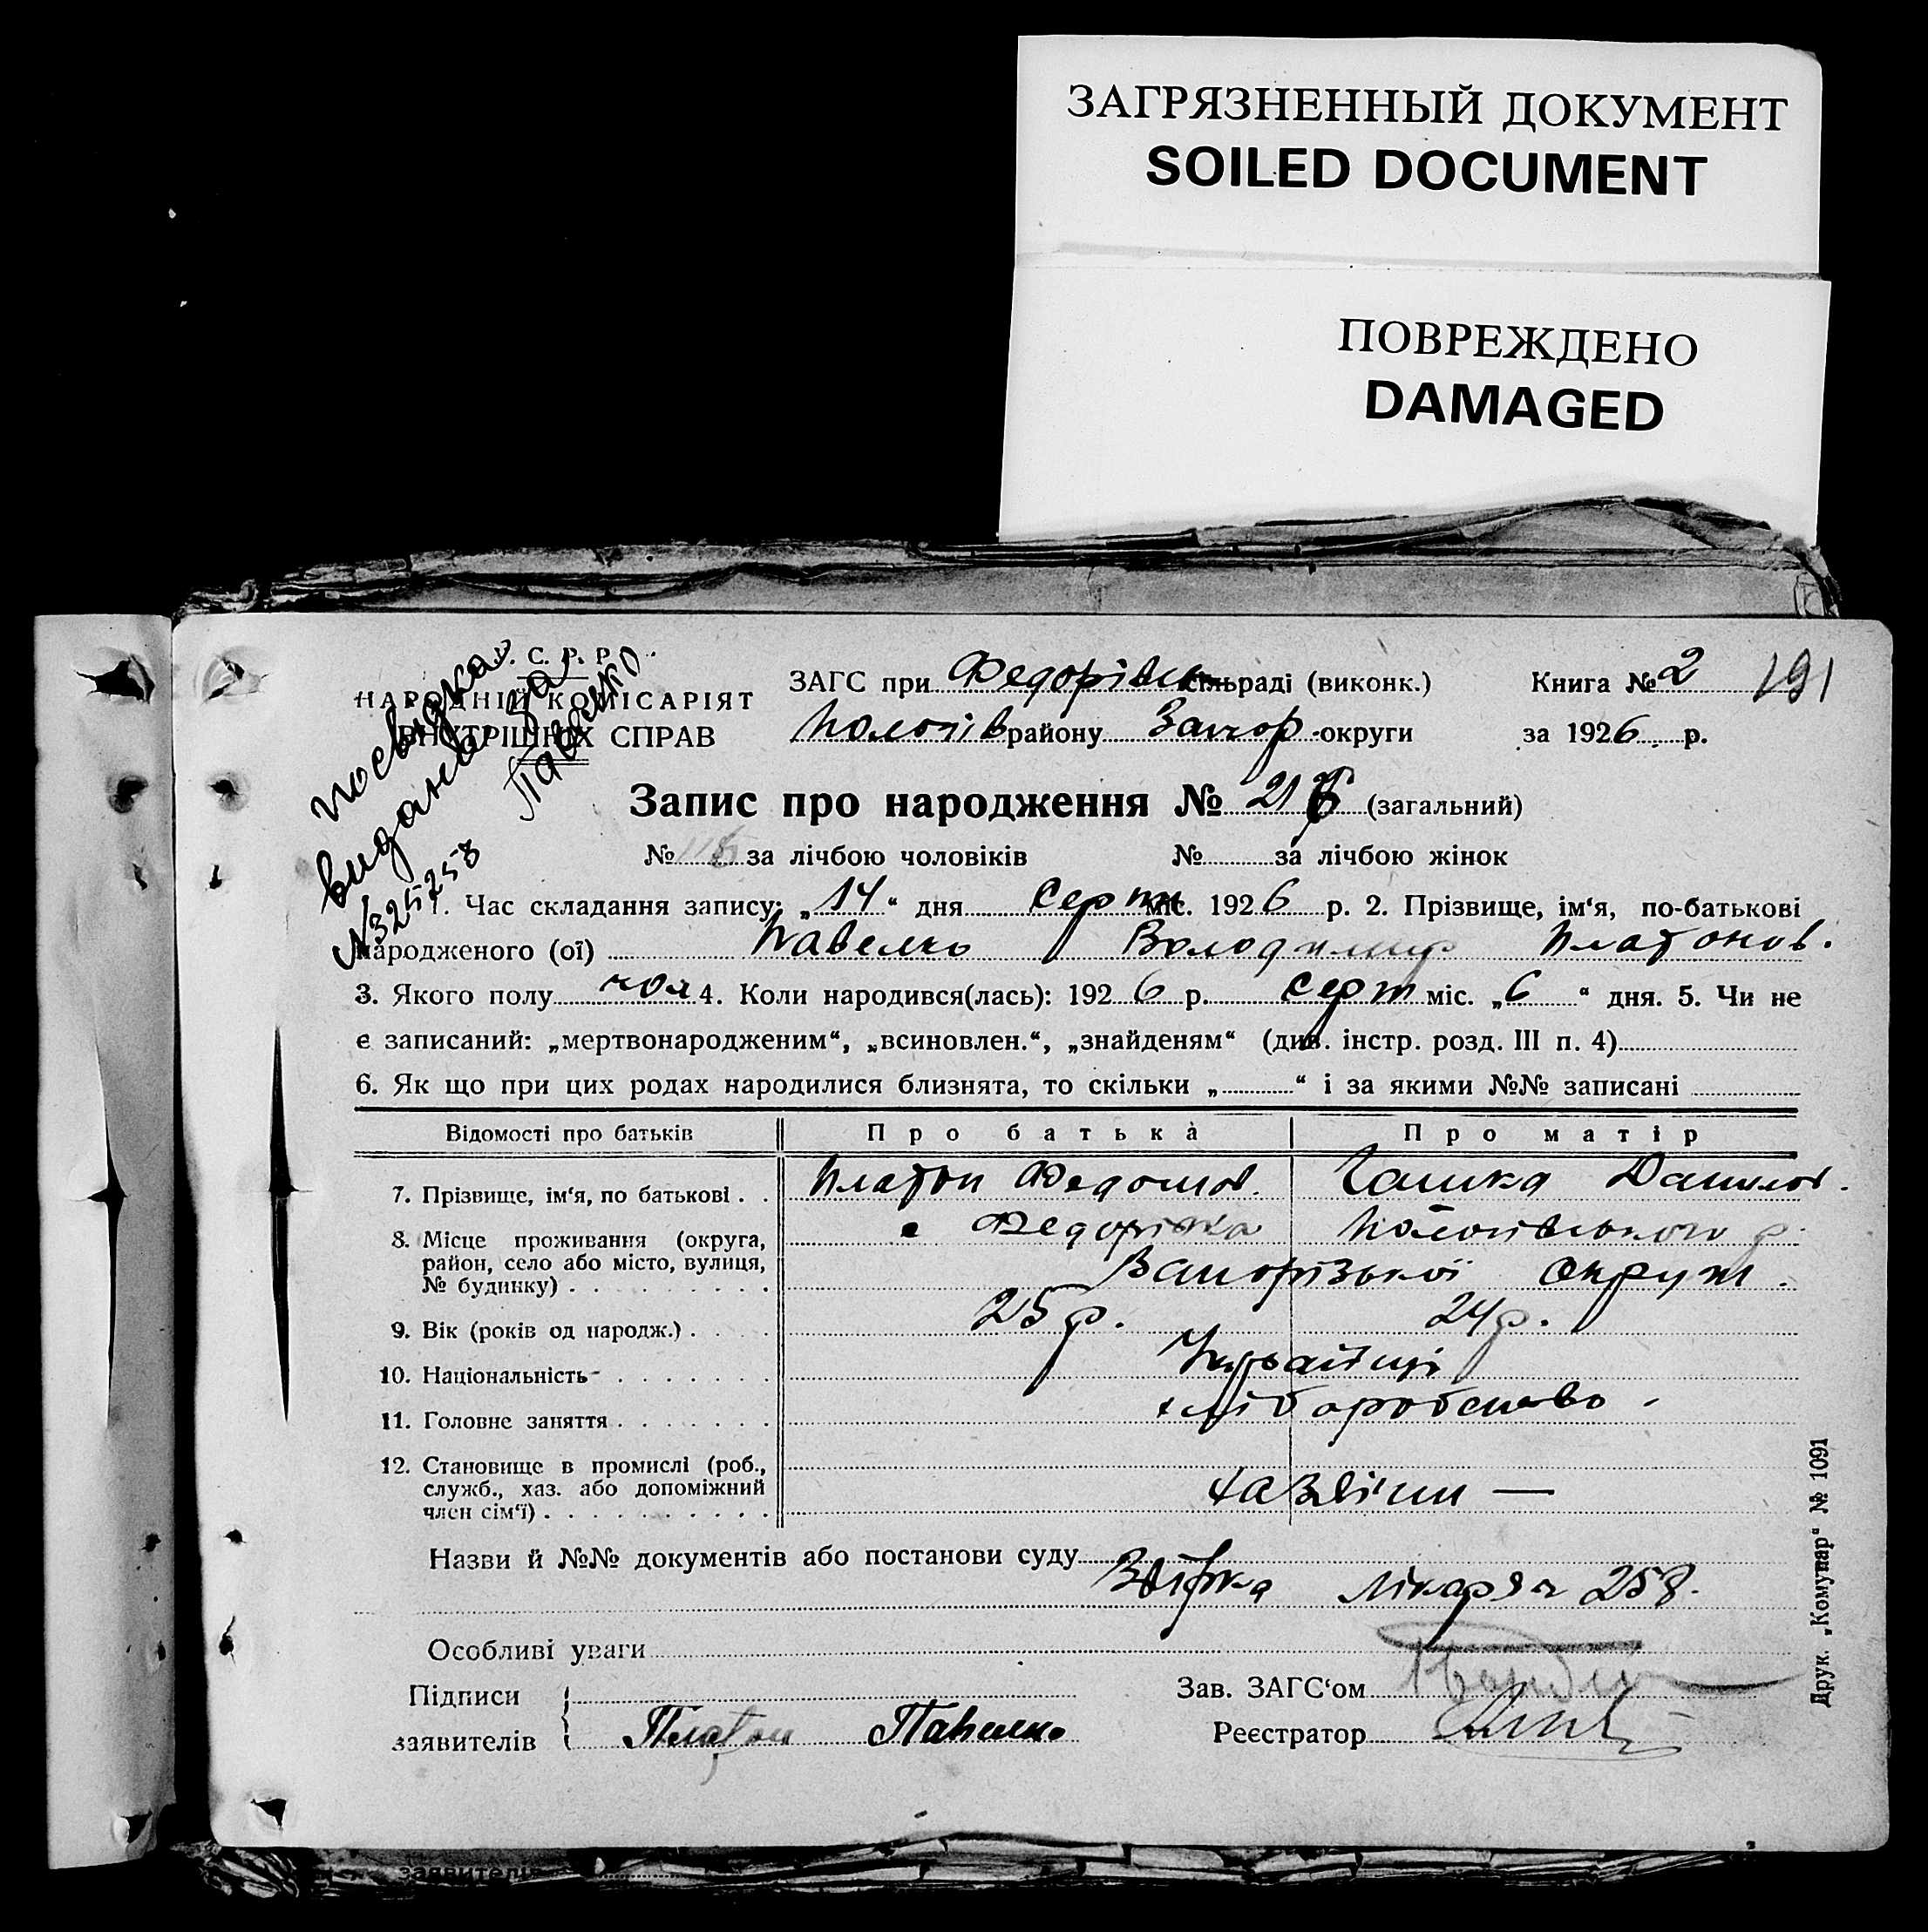 ЗАГРЯЗНЕННЫЙ ДОКУМЕНТ
SOILED DOCUMENT
ПОВРЕЖДЕНО
DAMAGED
посвідка
видана за
№325758
Павелко
У. С. Р. Р.
НАРОДНІЙ КОМІСАРІЯТ
ВНУТРІШНІХ СПРАВ
ЗАГС при Федорівск сільраді (виконк.) Книга № 2 191
Пологів району Запор. округи за 1926 р.
Запис про народження № 21 (загальний)
№ за лічбою чоловіків № за лічбою жінок
1. Час складання запису: „14“ дня Серпн міс. 1926 р. 2. Прізвище, ім‘я, по-батькові
народженого (ої) Павелко Володимир Платонов.
3. Якого полу чол 4. Коли народився(лась): 1926 р. серп міс. „6“ дня. 5. Чи не
є записаний: „мертвонародженим“, „всиновлен.“, „знайденям“ (див. інстр. розд. III п. 4)
6. Як що при цих родах народилися близнята, то скільки „ “ і за якими №№ записані
Відомості про батьків Про батька Про матір
7. Прізвище, ім‘я, по батькові . . Платон Федотов. Данилов.
8. Місце проживання (округа, район, село або місто, вулиця, № будинку) . с Федорівка Пологівського р.
Запорізької округи.
9. Вік (років од народж.) . 25 р. 24 р.
10. Національність Українці
11. Головне заняття . хліборобство.
12. Становище в промислі (роб., служб., хаз. або допоміжний член сім‘ї) . хазяїни —
Назви й №№ документів або постанови суду
Звістка лікаря 258.
Особливі уваги
Підписи Зав. ЗАГС‘ом
заявителів Платон Павелко Реєстратор
Друк. „Комунар“ № 1091
заявителів